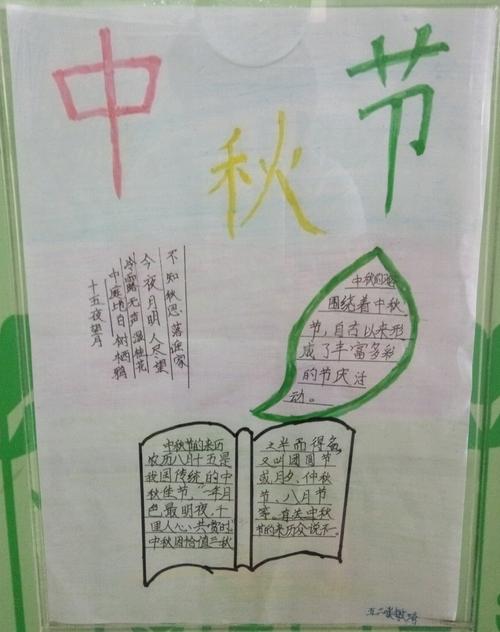 中秋节
十五夜望月
中庭地白树栖鸦
冷露无声湿桂花
今夜月明人尽望
不知秋思落谁家
中秋的
围绕着中秋
节，自古以来形
成了丰富多彩
的节庆活
动。
中秋节的来历
农历八月十五是
我国传统的中
秋佳节，"一年月
色最明夜，千
里人心共赏时
中秋因恰值三秋
之半而得名
又叫团圆节
或月夕、仲秋
节、八月节
等。有关中秋
节的来历众说不一
五二